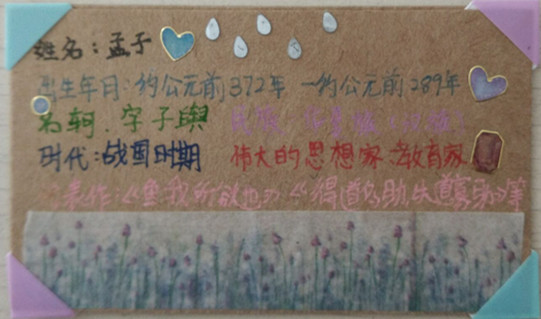 姓名:孟子
出生年日:约公元前372年 一约公元前289年
名轲,字子舆
时代:战国时期 伟大的思想家、教育家
作:《鱼我所欲也》《得道多助失道寡助》等